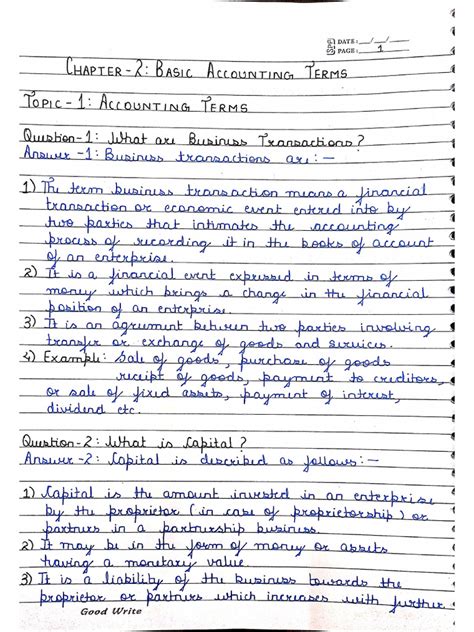 DATE: __/__/__
PAGE: 1
CHAPTER-2: BASIC ACCOUNTING TERMS
TOPIC-1: ACCOUNTING TERMS
Question-1: What are Business Transactions?
Answer-1: Business transactions are:-
1) The term business transaction means a financial
transaction or economic event entered into by
two parties that intimates the accounting
process of recording it in the books of account
of an enterprise.
2) It is a financial event expressed in terms of
money which brings a change in the financial
position of an enterprise.
3) It is an agrument between two parties involving
transfer or exchange of goods and services.
4) Example: Sale of goods, purchase of goods
receipt of goods, payment to creditors,
or sale of fixed assets, payment of interest,
dividend etc.
Question-2: What is Capital?
Answer-2: Capital is described as follows:-
1) Capital is the amount invested in an enterprise
by the proprietor (in case of proprietorship) or
partners in a partnership business.
2) It may be in the form of money or assets
having a monetary value.
3) It is a liability of the business towards the
proprietor or partners which increases with further
Good Write